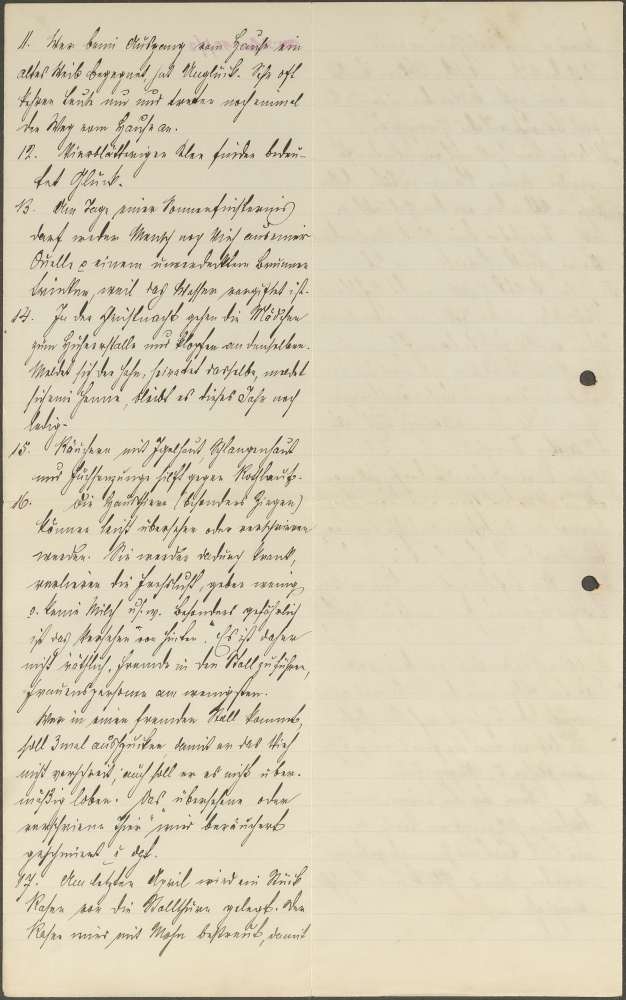 11. Wer beim Ausgang vom Hause ein
altes Weib begegnet, hat Unglück. Sehr oft
kehren Leute um und treten noch einmal
den Weg vom Hause an.
12. Vierblättrigen Klee finden bedeu-
tet Glück.
13. Am Tage einer Sonnenfinsternis
darf weder Mensch noch Vieh aus einer
Quelle o. einem unverdeckten Brunnen
trinken, weil das Wasser vergiftet ist.
14. In der Christnacht gehen die Mädchen
zum Hühnerstalle und klopfen an denselben.
Meldet sich der Hahn, heiratet dasselbe, meldet
sich eine Henne, bleibt es dieses Jahr noch
ledig.
15. Räuchern mit Igelhaut Schlangenhaut
und Fuchsenzunge hilft gegen Rothlauf.
16. Die Hausthiere (besonders Ziegen)
können leicht übersehen oder verschrieen
werden. Sie werden dadurch krank,
verlieren die Fresslust, geben wenig
o. keine Milch u.s.w. Besonders gefährlich
ist das Versehen von hinten. Es ist daher
nicht räthlich, Fremde in den Stall zu führen,
Frauenspersonen am wenigsten.
Wer in einen fremden Stall kommt,
soll 3mal ausspucken, damit er das Vieh
nicht verschreit; auch soll er es nicht über-
mäßig loben. Das übersehene oder
verschriene Thier wird beräuchert
geschmiert u. dgl.
17. Am letzten April wird ein Stück
Rasen vor die Stallthüre gelegt. Der
Rasen wird mit Mohn bestreut, damit